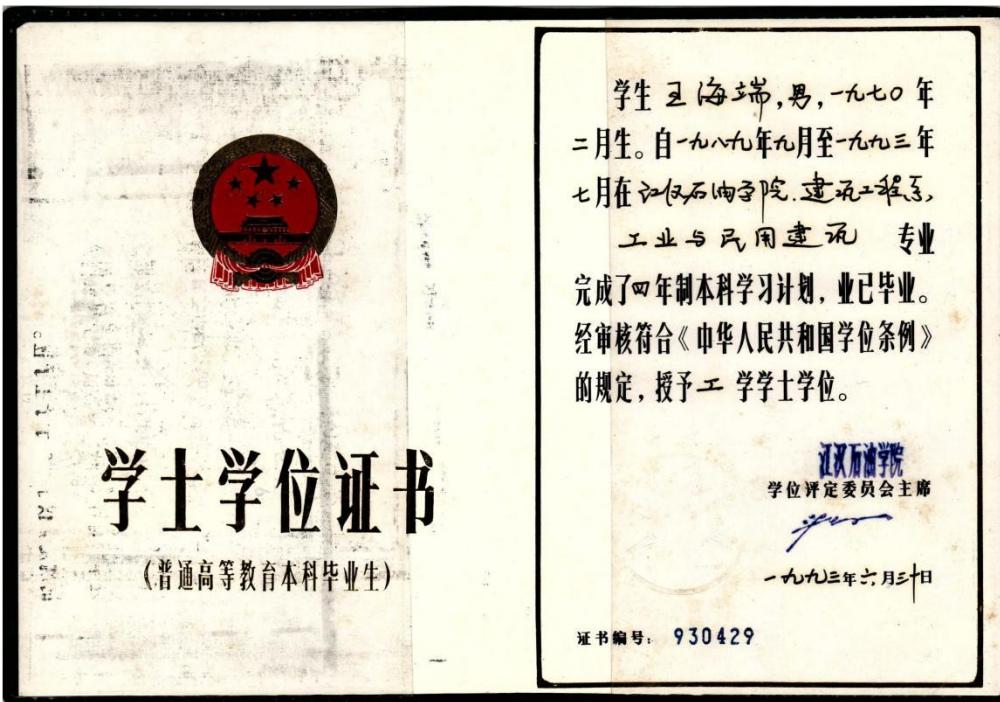 学士学位证书
(普通高等教育本科毕业生)
学生 王海端,男,一九七〇年
二月生。自一九八九年九月至一九九三年
七月在江汉石油学院.建筑工程系,
工业与民用建筑 专业
完成了四年制本科学习计划,业已毕业。
经审核符合《中华人民共和国学位条例》
的规定,授予工学学士学位。
江汉石油学院
学位评定委员会主席
一九九三年六月三十日
证书编号: 930429